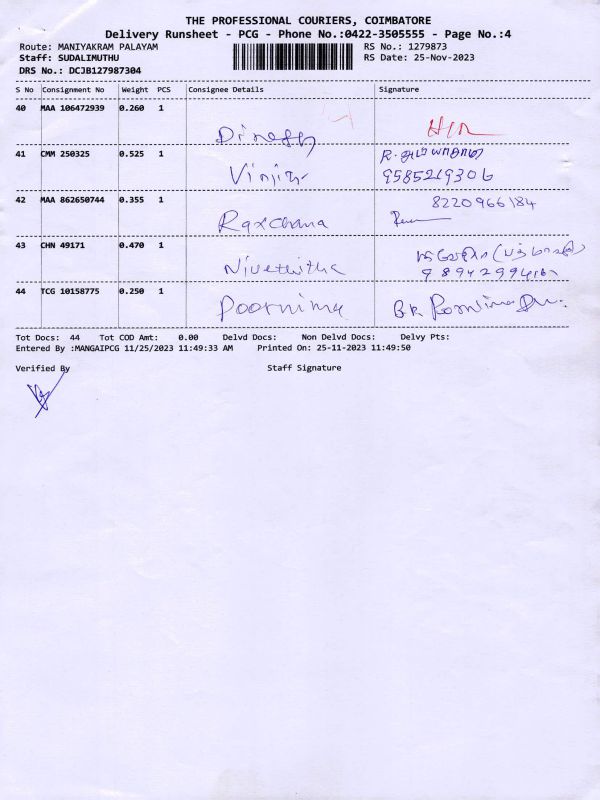 THE PROFESSIONAL COURIERS, COIMBATORE
Delivery Runsheet - PCG - Phone No.:0422-3505555 - Page No.:4
Route: MANIYAKRAM PALAYAM RS No.: 1279873
Staff: SUDALIMUTHU RS Date: 25-Nov-2023
DRS No.: DCJB127987304
S No Consignment No Weight PCS Consignee Details Signature
40 MAA 106472939 0.260 1
Dinesh
41 CMM 250325 0.525 1
9585219306
42 MAA 862650744 0.355 1 8220966184
Raxchana
43 CHN 49171 0.470 1
Nivethitha
44 TCG 10158775 0.250 1
Poornima B.R Poornima
Tot Docs: 44 Tot COD Amt: 0.00 Delvd Docs: Non Delvd Docs: Delvy Pts:
Entered By :MANGAIPCG 11/25/2023 11:49:33 AM Printed On: 25-11-2023 11:49:50
Verified By Staff Signature